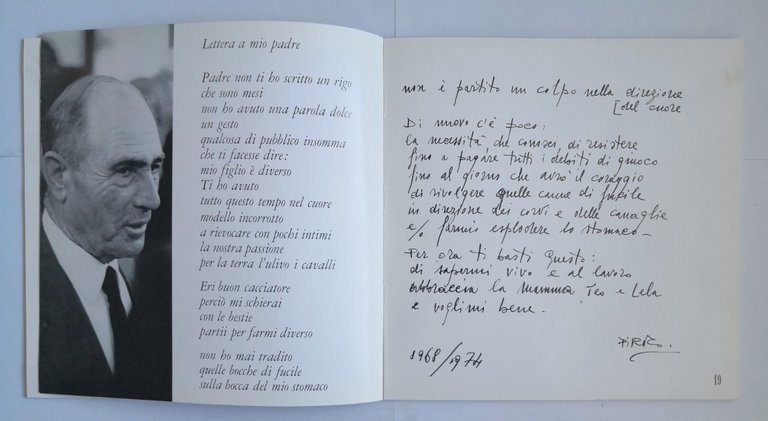 Lettera a mio padre
Padre non ti ho scritto un rigo
che sono mesi
non ho avuto una parola dolce
un gesto
qualcosa di pubblico insomma
che ti facesse dire:
mio figlio è diverso
Ti ho avuto
tutto questo tempo nel cuore
modello incorrotto
a rievocare con pochi intimi
la nostra passione
per la terra l'ulivo i cavalli
Eri buon cacciatore
perciò mi schierai
con le bestie
partii per farmi diverso
non ho mai tradito
quelle bocche di fucile
sulla bocca del mio stomaco
non è partito un colpo nella direzione
[del cuore
Di nuovo c'è poco:
la necessità, che conosci, di resistere
fino a pagare tutti i debiti di giuoco
fino al giorno che avrò il coraggio
di rivolgere quelle canne di fucile
in direzione dei corvi e delle canaglie
e/o farmi esplodere lo stomaco –
Per ora ti basti questo:
di sapermi vivo e al lavoro
abbraccia la mamma Teo e Lela
e voglimi bene.
1968/1974
19